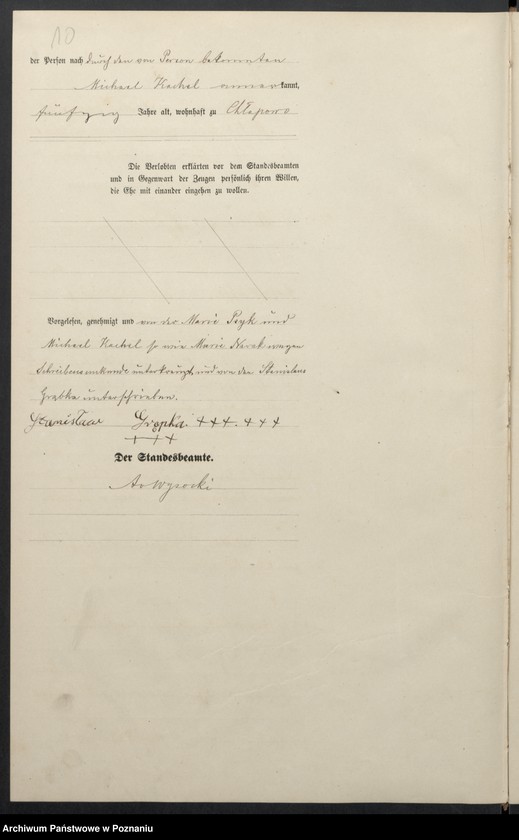 10
der Person nach durch den von Person bekannten
Michael Kachel anner kannt,
fünfzig Jahre alt, wohnhaft zu Chłapowo
Die Verlobten erklärten vor dem Standesbeamten
und in Gegenwart der Zeugen persönlich ihren Willen,
die Ehe mit einander eingehen zu wollen.
Vorgelesen, genehmigt und von der Marie Psyk und
Michael Kachel so wie Marie wegen
Schreibensunkunde unterkreuzt, und von den Stanislaus
Grąbka unterschrieben.
Stanisław Grąpka +++. +++
+++
Der Standesbeamte.
Wysocki
Archiwum Państwowe w Poznaniu